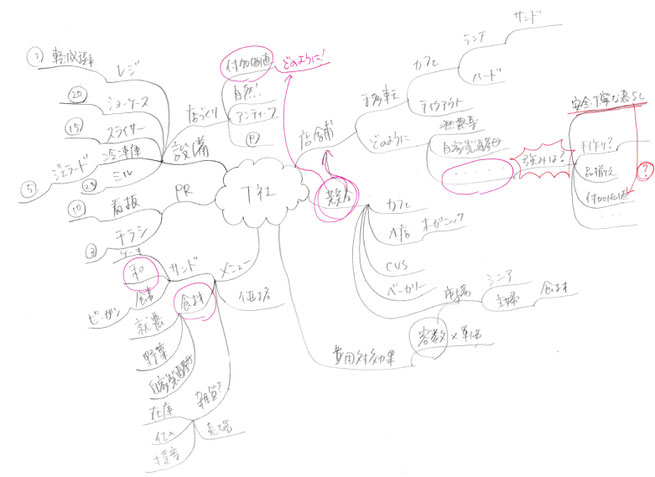 サンド
ランチ
カフェ
ハード
テイクアウト
自転車
どのように
無農薬
自家製酵母
・・・・・
強みは?
安全・丁寧な暮らし
手作り?
品揃え
付加価値
・・・
?
① 軽減税率
レジ
⑳
ショーケース
⑮
スライサー
冷凍庫
⑤
ジェラード
ミル
設備
店づくり
付加価値
どのように!
自然?
アンティーク
Ⓟ
店舗
PR
⑩
看板
③
チラシ
ア社
競合
カフェ
A店
オーガニック
CVS
ベーカリー
市場
シニア
主婦
食材
ケーキ
和
サンド
メニュー
食事
ビーガン
食材
価格
就農
野菜
自家製酵母
雑貨?
在庫
仕入
売場
費用対効果
客数
×単価